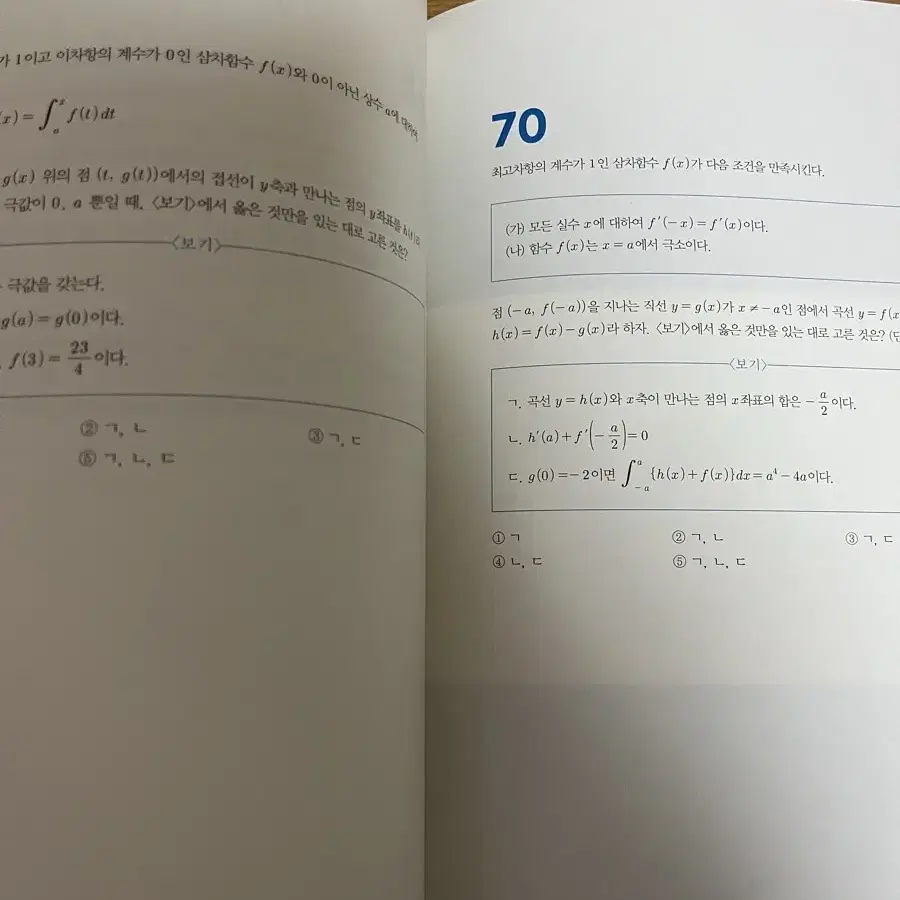 가 1이고 이차항의 계수가 0인 삼차함수 f(x)와 0이 아닌 상수 a에 대하여
(x)=∫ₐˣ f(t)dt
g(x) 위의 점 (t, g(t))에서의 접선이 y축과 만나는 점의 y좌표를 h(t)라
극값이 0, a 뿐일 때, 〈보기〉에서 옳은 것만을 있는 대로 고른 것은?
〈보기〉
극값을 갖는다.
g(a)=g(0)이다.
f(3)=23/4이다.
② ㄱ, ㄴ
③ ㄱ, ㄷ
⑤ ㄱ, ㄴ, ㄷ
70
최고차항의 계수가 1인 삼차함수 f(x)가 다음 조건을 만족시킨다.
(가) 모든 실수 x에 대하여 f′(-x)=f′(x)이다.
(나) 함수 f(x)는 x=a에서 극소이다.
점 (-a, f(-a))을 지나는 직선 y=g(x)가 x≠-a인 점에서 곡선 y=f(x
h(x)=f(x)-g(x)라 하자. 〈보기〉에서 옳은 것만을 있는 대로 고른 것은? (단
〈보기〉
ㄱ. 곡선 y=h(x)와 x축이 만나는 점의 x좌표의 합은 -a/2이다.
ㄴ. h′(a)+f′(-a/2)=0
ㄷ. g(0)=-2이면 ∫₋ₐᵃ {h(x)+f(x)}dx=a⁴-4a이다.
① ㄱ ② ㄱ, ㄴ ③ ㄱ, ㄷ
④ ㄴ, ㄷ ⑤ ㄱ, ㄴ, ㄷ